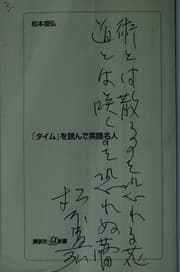 松本道弘
術とは散るを恐れる花
道とは咲くを恐れぬ蕾
「タイム」を読んで英語名人
松本道弘
講談社+α新書